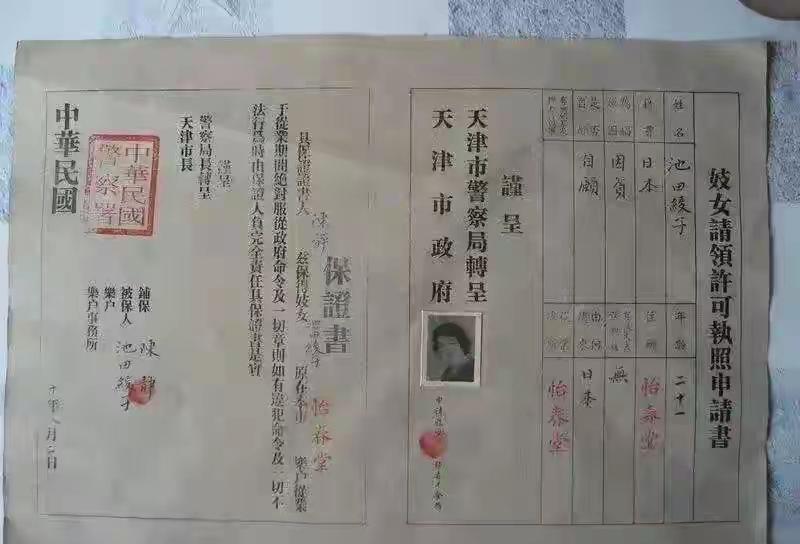 妓女請領許可執照申請書
姓名 池田綾子 年齡 二十一
籍貫 日本 住址 怡春堂
為娼原因 因貧 無
是否自願 自願 由何處來 日本
怡春堂
謹呈
天津市警察局轉呈
天津市政府
保證書
具保證書人 陳靜 茲保得妓女 池田綾子 原在本市 怡春堂 樂户從業
于從業期間絕對服從政府命令及一切章則如有違犯命令及一切不
法行為時由保證人負完全責任具保證書是實
謹呈
警察局長轉呈
天津市長
鋪保 陳靜
被保人 池田綾子
樂户
樂户事務所
中華民國
中華民國警察署